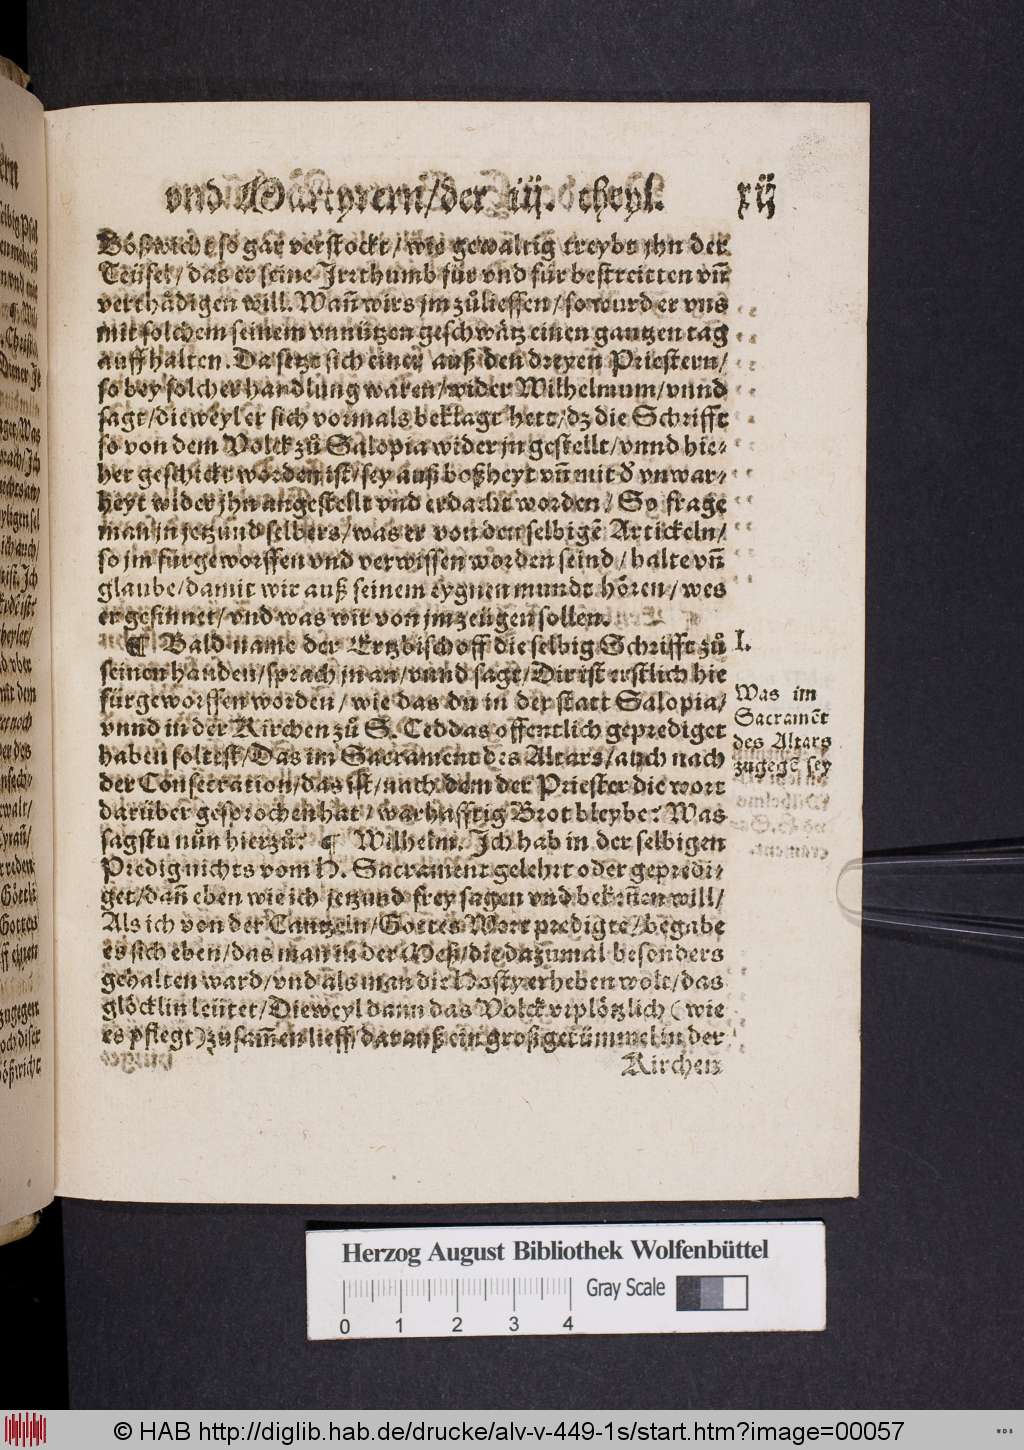 vnd Märtyrern/der iij. theyl.
xij
Bößwicht so gar verstockt/ wie gewaltig treybt jhn der
Teüfel/ das er seine Jrrthumb für vnd für bestreitten vñ
verthädigen will. Wañ wirs jm zůlieffen/ so wurd er vns
mit solchem seinem vnnützen geschwätz einen gantzen tag
auffhalten. Da setzt sich einer auß den dreyen Priestern/
so bey solcher handlung waren/ wider Wilhelmum/ vnnd
sagt/ dieweyl er sich vormals beklagt hett/ dz die Schrifft
so von dem Volck zů Salopia wider jn gestellt/ vnnd hie⸗
her geschickt worden ist/ sey auß boßheyt vñ mit d̓ vnwar⸗
heyt wider jhn angestellt vnd erdacht worden/ So frage
man jn jetzund selbers/ was er von den selbigẽ Artickeln/
so jm fürgeworffen vnd verwissen worden seind/ halte vñ
glaube/ damit wir auß seinem eygnen mundt hören/ wes
er gesinnet/ vnd was wir von jm zeügen sollen.
¶ Bald name der Ertzbischoff die selbig Schrifft zů
seinen handen/ sprach jn an/ vnnd sagt/ Dir ist erstlich hie
fürgeworffen worden/ wie das du in der statt Salopia/
vnnd in der Kirchen zů S. Ceddas offentlich geprediget
haben soltest/ Das im Sacrament des Altars/ auch nach
der Consecration/ das ist/ nach dem der Priester die wort
darüber gesprochen hat/ warhafftig Brot bleybe: Was
sagstu nůn hierzů? ¶ Wilhelm. Jch hab in der selbigen
Predig nichts vom H. Sacrament gelehrt oder gepredi⸗
get/ dañ eben wie ich jetzund frey sagen vnd bekeñen will/
Als ich von der Cantzeln/ Gottes Wort predigte/ begabe
es sich eben/ das man in der Meß/ die dazumal besonders
gehalten ward/ vnd als man die Hosty erheben wolt/ das
glöcklin leütet/ Dieweyl dann das Volck vrplötzlich (wie
es pflegt) zůsam̃en lieff/ darauß ein groß getümmel in der
Kirchen
I.
Was im
Sacramẽt
des Altars
zugegẽ sey
Herzog August Bibliothek Wolfenbüttel
Gray Scale
0 1 2 3 4
© HAB http://diglib.hab.de/drucke/alv-v-449-1s/start.htm?image=00057